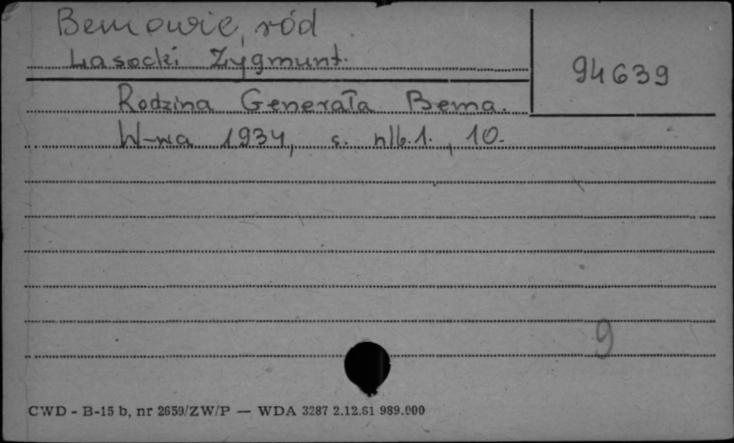 Bemowie, ród
Lasocki Zygmunt.
94639
Rodzina Generała Bema.
W-wa 1934, s. nlb.1., 10.
9
CWD - B-15 b, nr 2659/ZW/P — WDA 3287 2.12.61 989.000